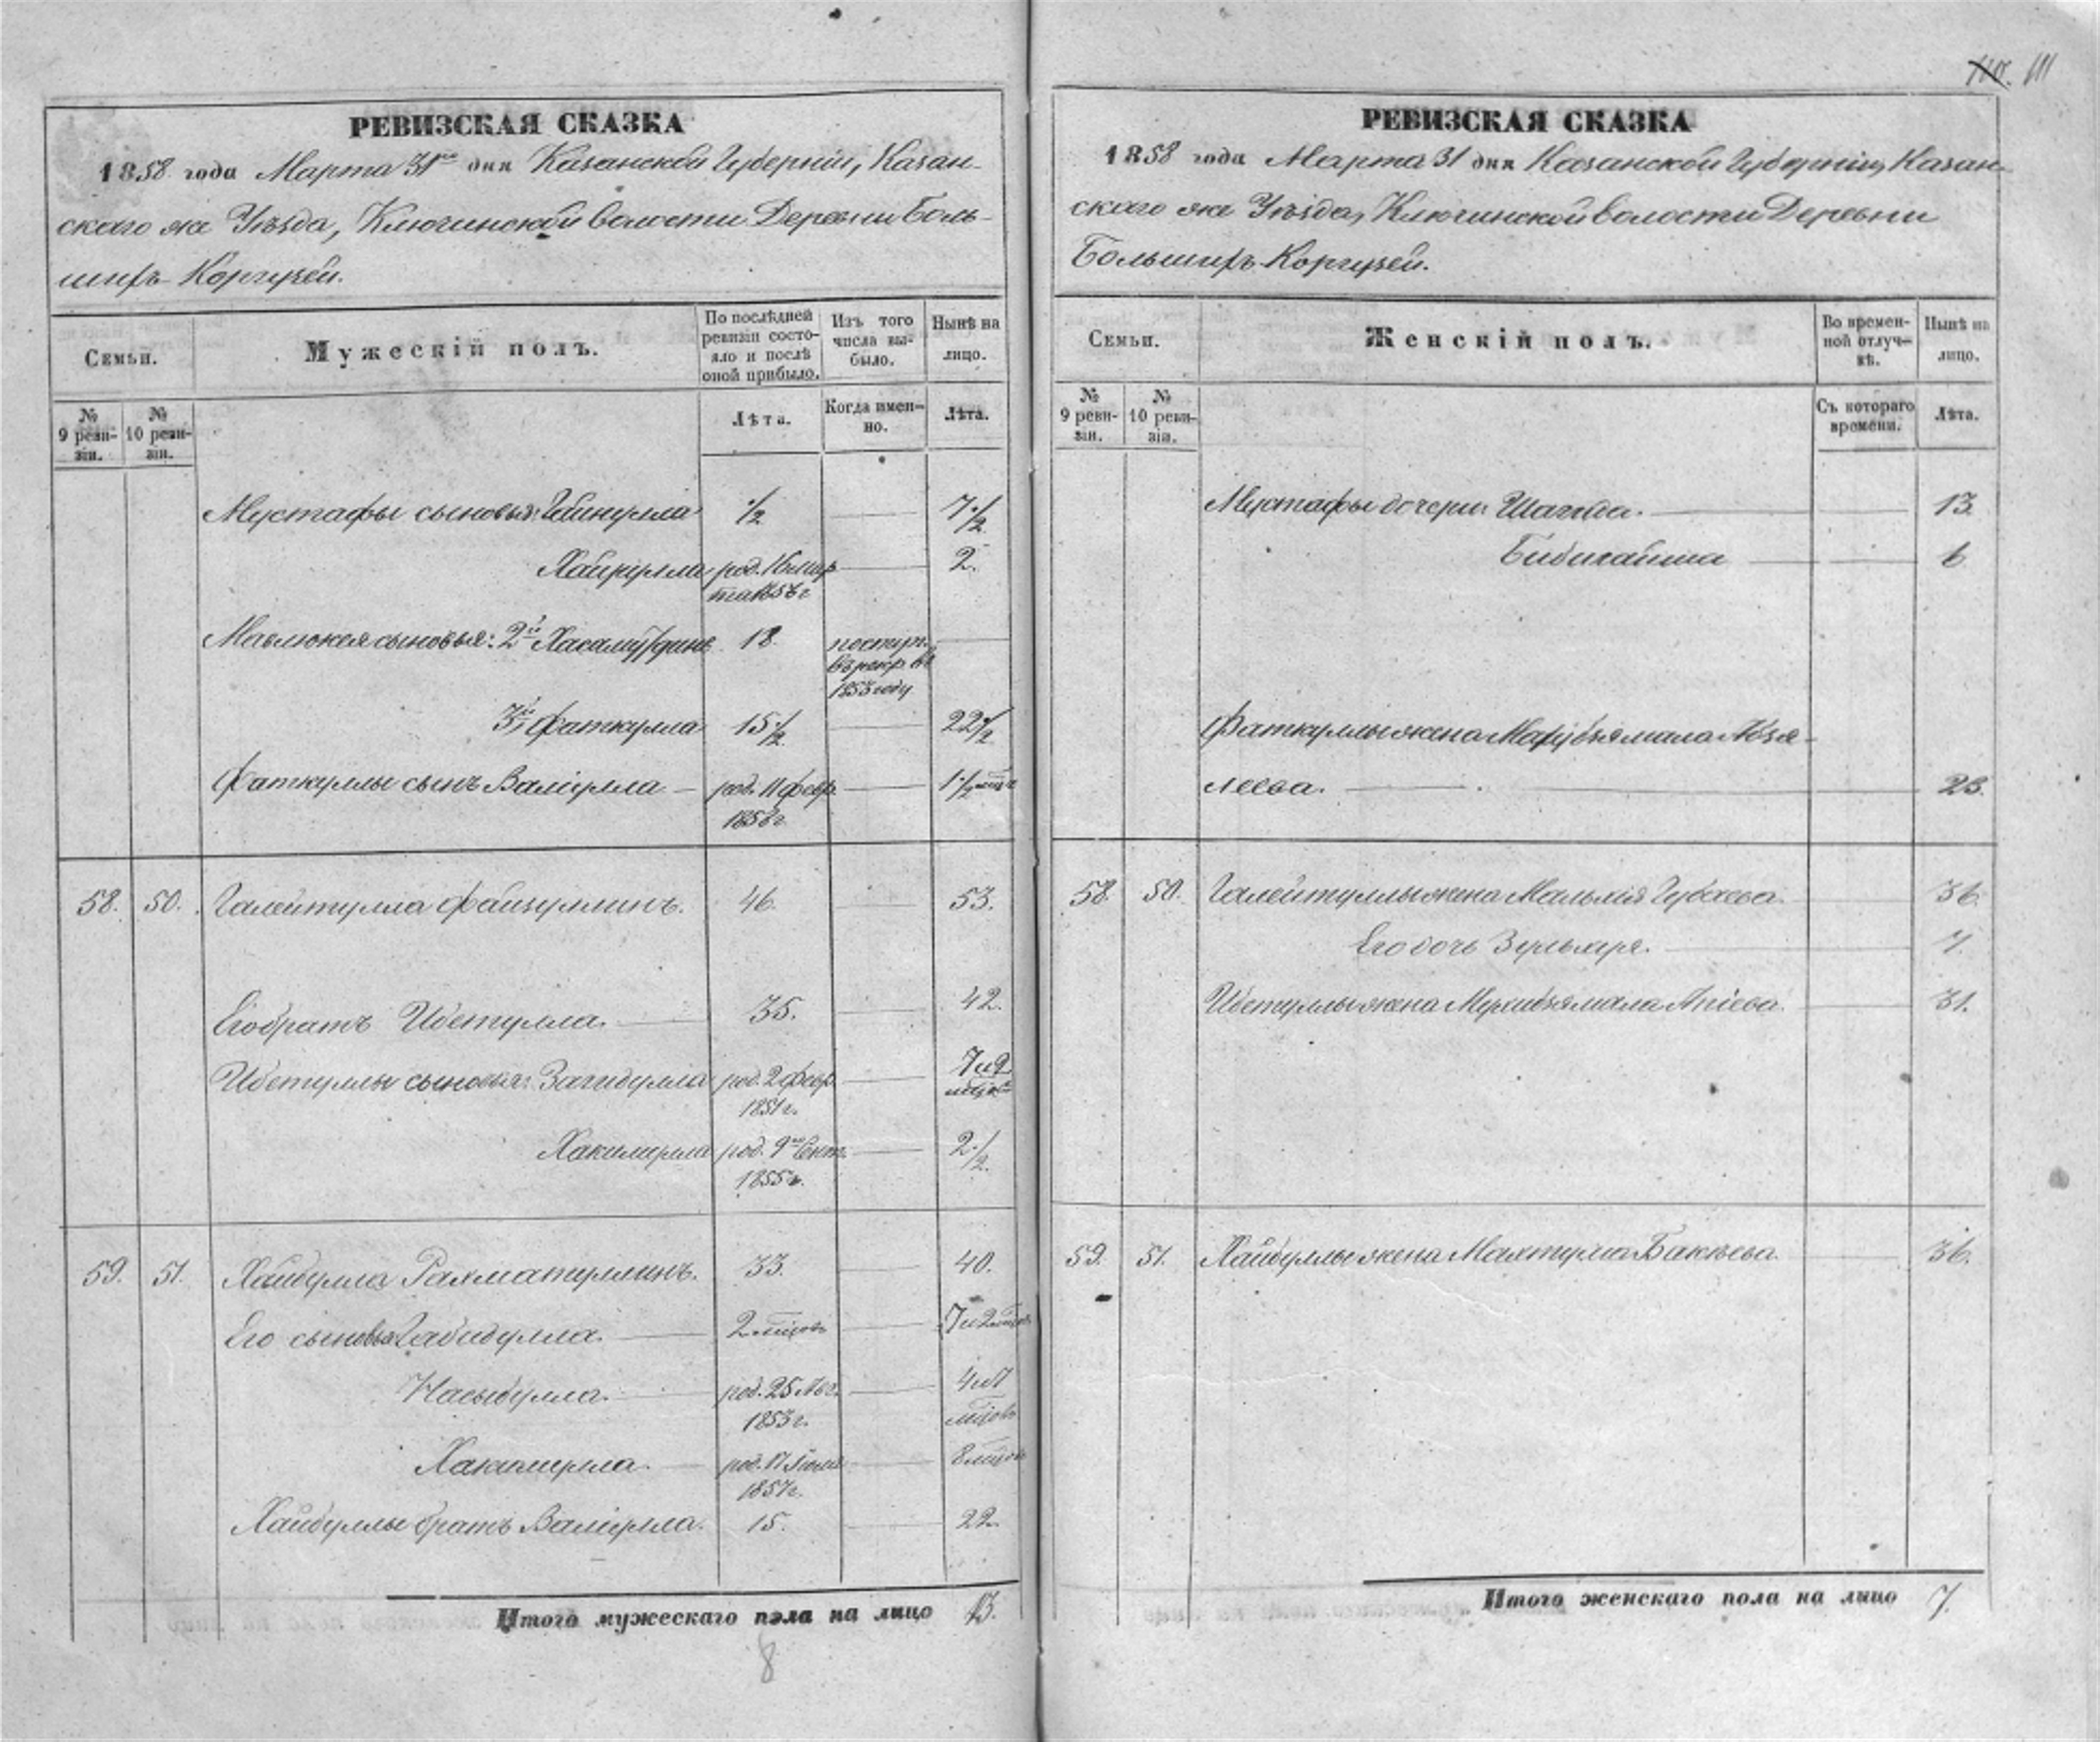 110. 111
РЕВИЗСКАЯ СКАЗКА
1858 года Марта 31го дня Казанской Губерніи, Казан-
скаго же Уѣзда, Ключинской волости Деревни Боль-
шихъ Коргузей.
Семьи.
Мужескій полъ.
По послѣдней ревизіи состояло и послѣ оной прибыло.
Изъ того числа выбыло.
Нынѣ на лицо.
№ 9 ревизіи.
№ 10 ревизіи.
Лѣта.
Когда именно.
Лѣта.
Мустафы сыновья: 1/2 7 1/2
Хайрулла род. 16 мар 2.
та 1856 г
сыновья: 2й 18 поступ.
въ рекр. въ
1853 году
3й Фаткулла 15 1/2 22 1/2
Фаткуллы сынъ Валіулла род. 11 февр. 1 1/2 мѣсяц
1858 г.
58. 50. Галейтулла Файзуллинъ. 46. 53.
Его братъ Ибетулла. 35. 42.
Ибетуллы сыновья: Загидулла род. 2 февр. 7 и 2
1851 г. мѣсцов
Хакимулла род. 9го Сент. 2 1/2
1855 г.
59. 51. Хайбулла Рахматуллинъ. 33. 40.
Его сыновья Габидулла. 2 мѣсцовъ 7 и 2 мѣсцов
Насыбулла. род. 25 Авг. 4 и 7
1853 г. мѣсцовъ
Хакимулла. род. 17 Іюля 8 мѣсцовъ
1857 г.
Хайбуллы братъ Валіулла. 15. 22.
Итого мужескаго пола на лицо 13.
8
РЕВИЗСКАЯ СКАЗКА
1858 года Марта 31 дня Казанской Губерніи, Казан-
скаго же Уѣзда, Ключинской волости Деревни
Большихъ Коргузей.
Семьи.
Женскій полъ.
Во временной отлучкѣ.
Нынѣ на лицо.
№ 9 ревизіи.
№ 10 ревизіи.
Съ котораго времени.
Лѣта.
Мустафы дочери: Шагида. 13.
Бибигайша 6
Фаткуллы жена Абзя-
леева. 23.
58. 50. Галейтуллы жена Губаева. 36.
Его дочь 7.
Ибетуллы жена Апіева. 31.
59. 51. Хайбуллы жена Махтума Бакѣева. 36.
Итого женскаго пола на лицо 7.